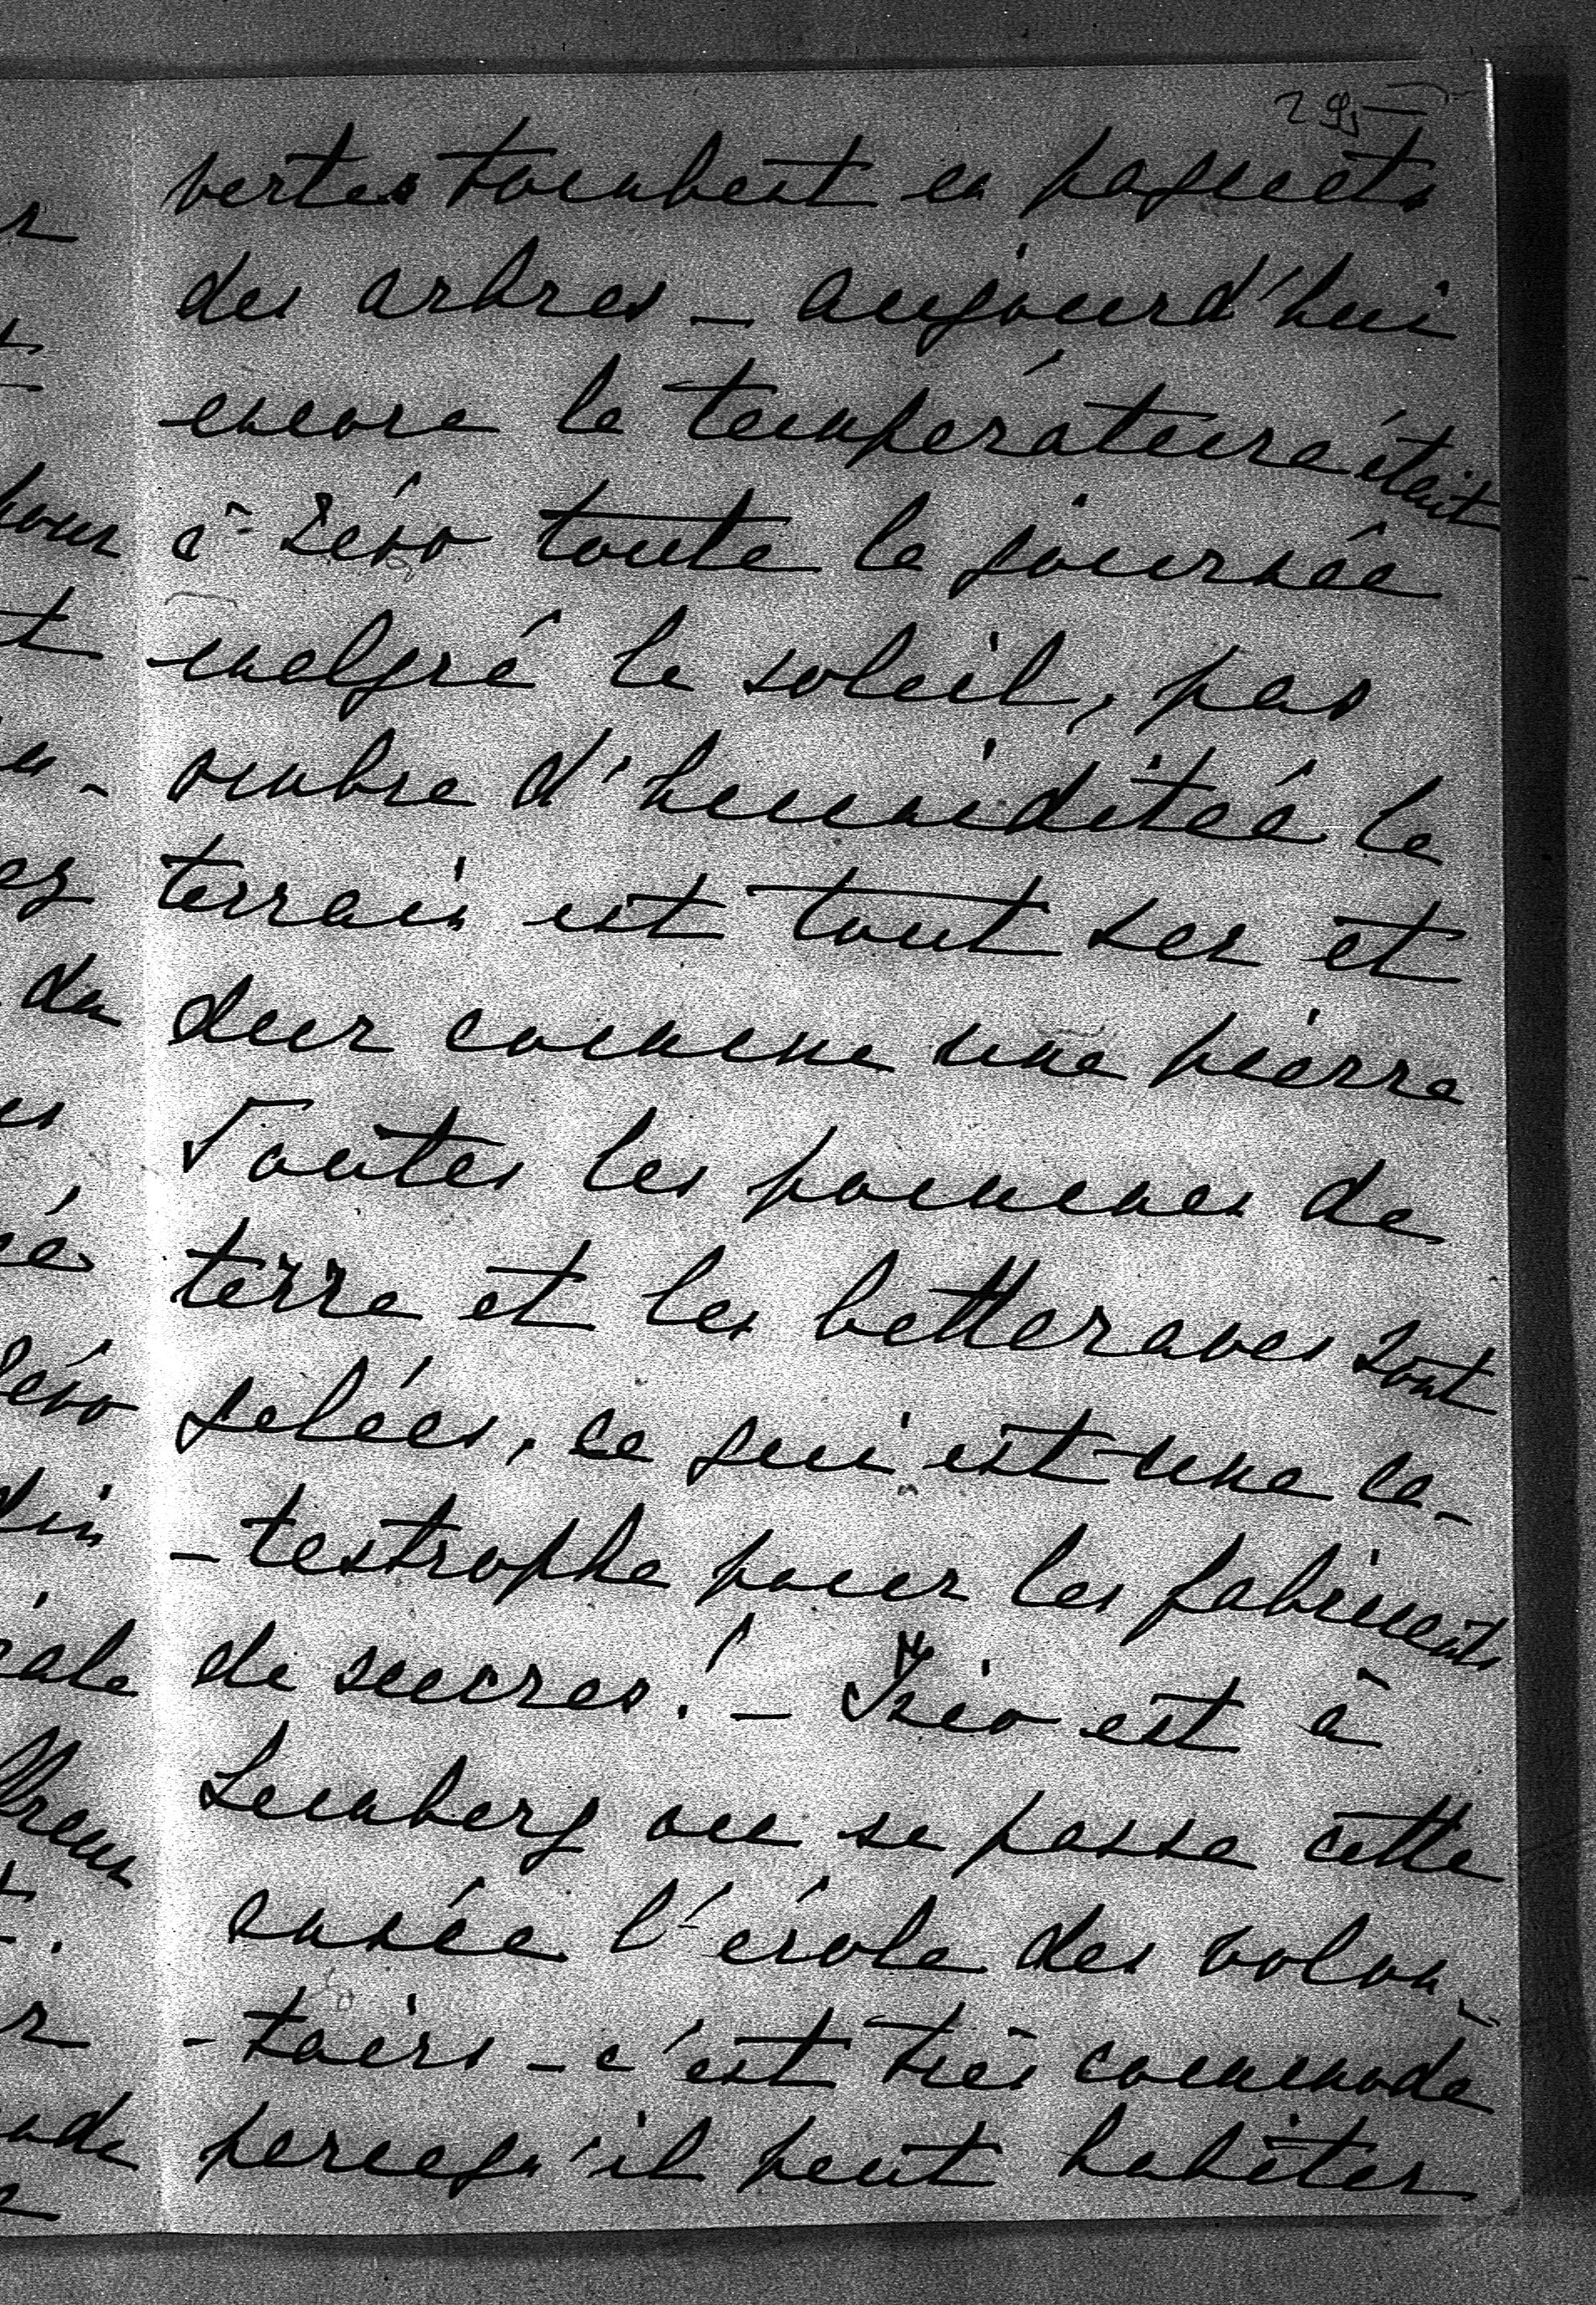 vertes tombent en paquets
des arbres – aujourd'hui
encore la température était
à zéro toute la journée
malgré le soleil, pas
ombre d'humiditée le
terrain est tout sec et
dur comme une pierre
Toutes les pommes de
terre et les betteraves sont
gelées, ce qui est une ca-
-tastrophe pour les fabricants
de sucres! – est à
Lemberg ou se passe cette
année l'école des volon-
-tairs – c'est très commode
parcequ'il peut habiter